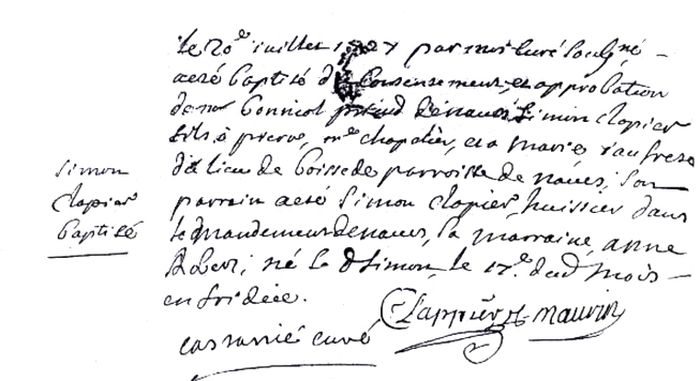 le 20e juillet 1727 par moi curé soussigné
a eté baptisé du consensement et approbation
de mr bonniol prieur de naves Simon clapier
fils à pierre, me chapelier, et a marie jaufrese
du lieu de boissede parroisse de naves, son
parrain a eté Simon clapier, huissier dans
le mandement de naves, sa marraine anne
né le d Simon, le 17e dud mois
en foi de ce.
Simon
clapier
baptisé
Clappier mauvin
curé